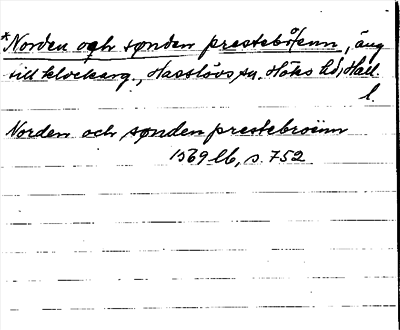 *Norden och sønden presteböenn, äng
till klockarg., Hasslövs sn. Höks hd, Hall.
l.
Norden och sønden prestebroinn
1569 lb, s. 752